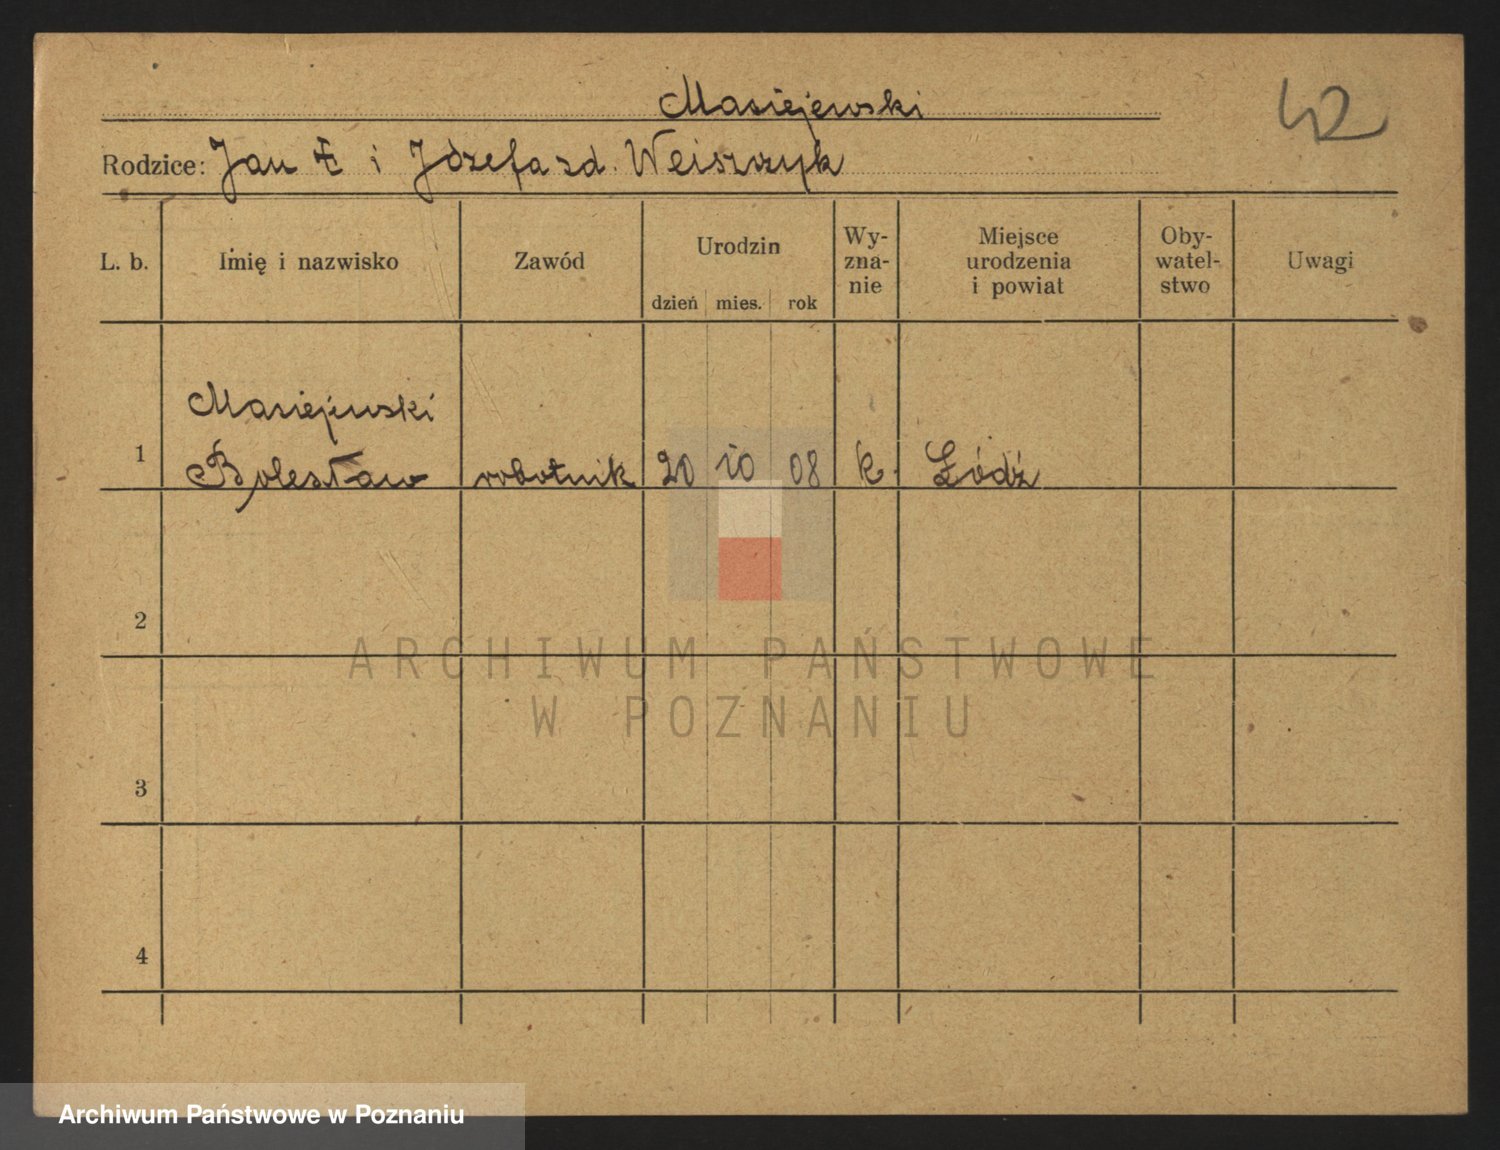 Masiejewski
42
Rodzice: Jan i Józefa zd. Weiszczyk
L. b.
Imię i nazwisko
Zawód
Urodzin
dzień mies. rok
Wy-
zna-
nie
Miejsce
urodzenia
i powiat
Oby-
watel-
stwo
Uwagi
Masiejewski
1 Bolesław robotnik 20 10 08 k. Łódź
2
ARCHIWUM PAŃSTWOWE
W POZNANIU
3
4
Archiwum Państwowe w Poznaniu